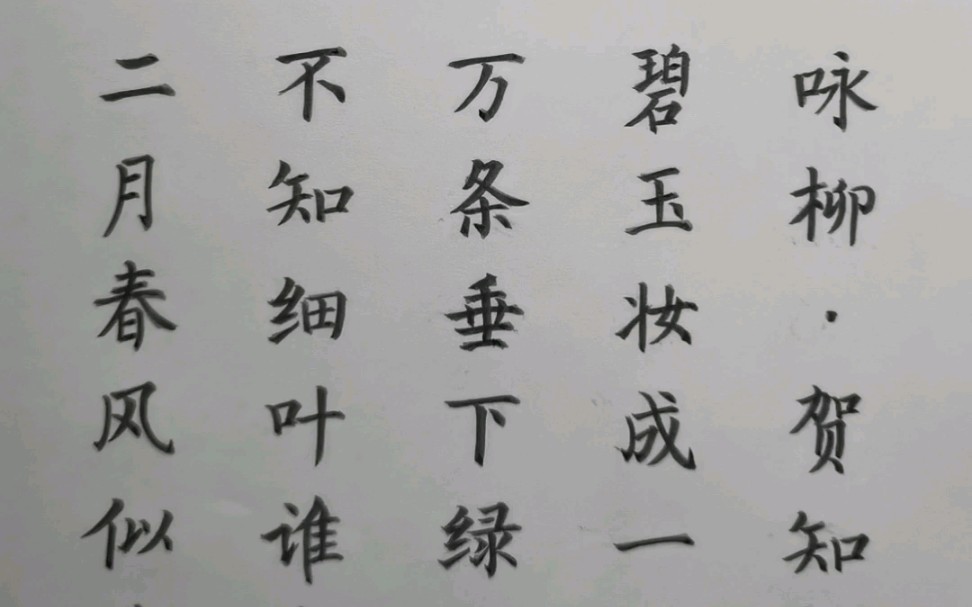 咏柳·贺知
碧玉妆成一
万条垂下绿
不知细叶谁
二月春风似